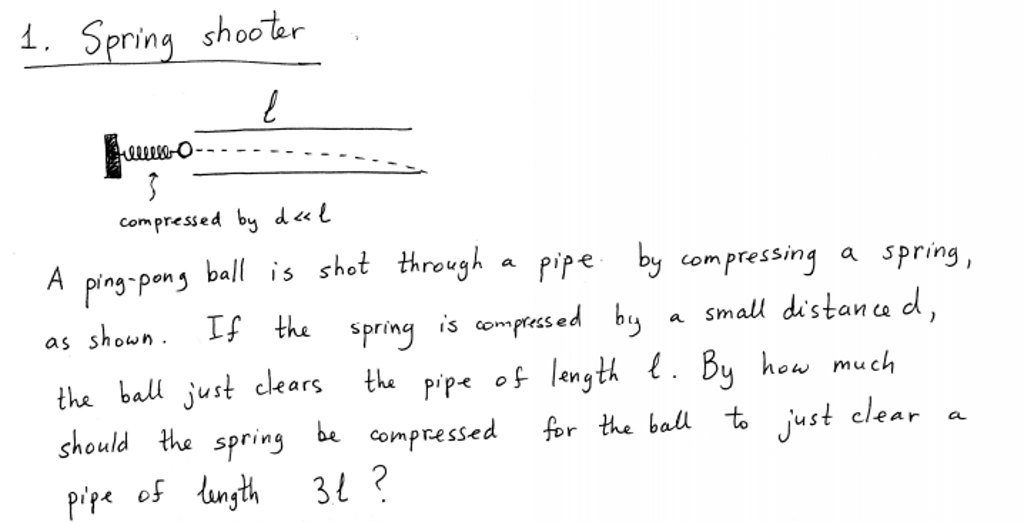 1. Spring shooter
l
compressed by d << l
A ping-pong ball is shot through a pipe by compressing a spring,
as shown. If the spring is compressed by a small distance d,
the ball just clears the pipe of length l. By how much
should the spring be compressed for the ball to just clear a
pipe of length 3l?